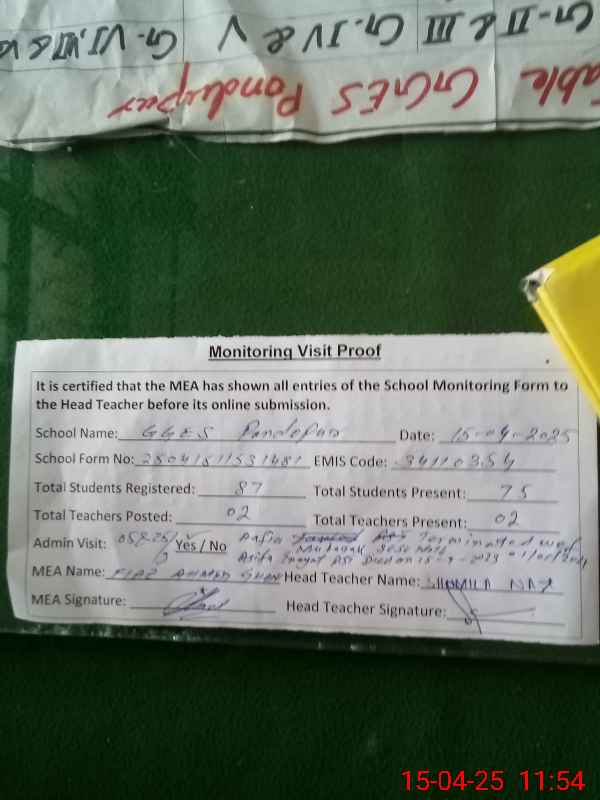 Gr-II & III Gr. IV & V Gr. VI, VII & VIII
Table GGES Pondupur
Monitoring Visit Proof
It is certified that the MEA has shown all entries of the School Monitoring Form to
the Head Teacher before its online submission.
School Name: GGES Date: 15-04-2025
School Form No: EMIS Code: 34110354
Total Students Registered: 87 Total Students Present: 75
Total Teachers Posted: 02 Total Teachers Present: 02
Admin Visit: Yes / No Terminated
MEA Name: FIAZ AHMED Head Teacher Name: SHOMILA NAZ
MEA Signature: Head Teacher Signature:
15-04-25 11:54